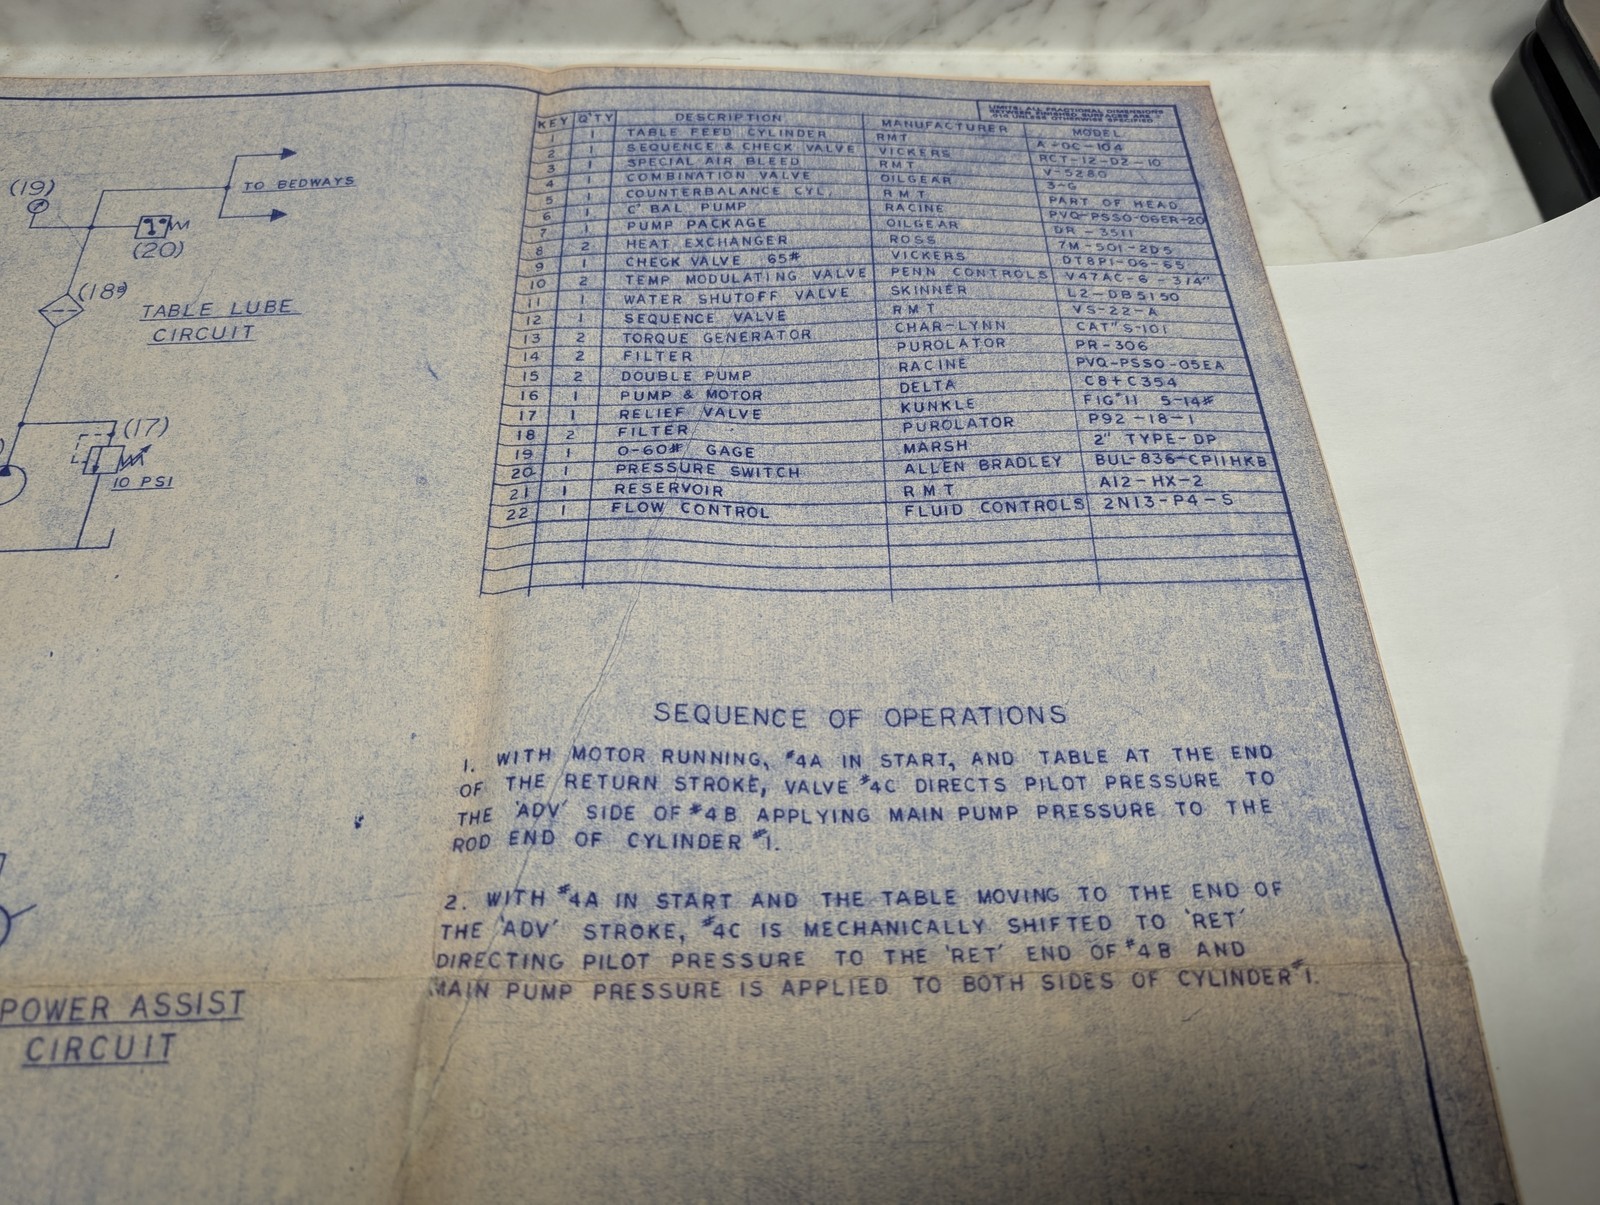 LIMITS: ALL FRACTIONAL DIMENSIONS
BETWEEN FINISHED SURFACES ARE
UNLESS OTHERWISE SPECIFIED
KEY Q'TY DESCRIPTION MANUFACTURER MODEL
1 1 TABLE FEED CYLINDER RMT A-DC-104
2 1 SEQUENCE & CHECK VALVE VICKERS RCT-12-D2-10
3 1 SPECIAL AIR BLEED RMT V-5280
4 1 COMBINATION VALVE OILGEAR 3-G
5 1 COUNTERBALANCE CYL. RMT PART OF HEAD
6 1 C' BAL PUMP RACINE PVQ-PSSO-06ER-20
7 1 PUMP PACKAGE OILGEAR DR-3511
8 2 HEAT EXCHANGER ROSS 7M-501-2D5
9 1 CHECK VALVE 65# VICKERS DT8P1-06-65
10 2 TEMP MODULATING VALVE PENN CONTROLS V47AC-6-3/4"
11 1 WATER SHUTOFF VALVE SKINNER L2-DB5150
12 1 SEQUENCE VALVE RMT VS-22-A
13 2 TORQUE GENERATOR CHAR-LYNN CAT" S-101
14 2 FILTER PUROLATOR PR-306
15 2 DOUBLE PUMP RACINE PVQ-PSSO-05EA
16 1 PUMP & MOTOR DELTA C8+C354
17 1 RELIEF VALVE KUNKLE FIG#11 5-14#
18 2 FILTER PUROLATOR P92-18-1
19 1 0-60# GAGE MARSH 2" TYPE-DP
20 1 PRESSURE SWITCH ALLEN BRADLEY BUL-836-CP11HKB
21 1 RESERVOIR RMT A12-HX-2
22 1 FLOW CONTROL FLUID CONTROLS 2N13-P4-S
(19)
TO BEDWAYS
(20)
(18)
TABLE LUBE
CIRCUIT
(17)
10 PSI
SEQUENCE OF OPERATIONS
1. WITH MOTOR RUNNING, #4A IN START, AND TABLE AT THE END
OF THE RETURN STROKE, VALVE #4C DIRECTS PILOT PRESSURE TO
THE 'ADV' SIDE OF #4B APPLYING MAIN PUMP PRESSURE TO THE
ROD END OF CYLINDER #1.
2. WITH #4A IN START AND THE TABLE MOVING TO THE END OF
THE 'ADV' STROKE, #4C IS MECHANICALLY SHIFTED TO 'RET'
DIRECTING PILOT PRESSURE TO THE 'RET' END OF #4B AND
MAIN PUMP PRESSURE IS APPLIED TO BOTH SIDES OF CYLINDER #1.
POWER ASSIST
CIRCUIT